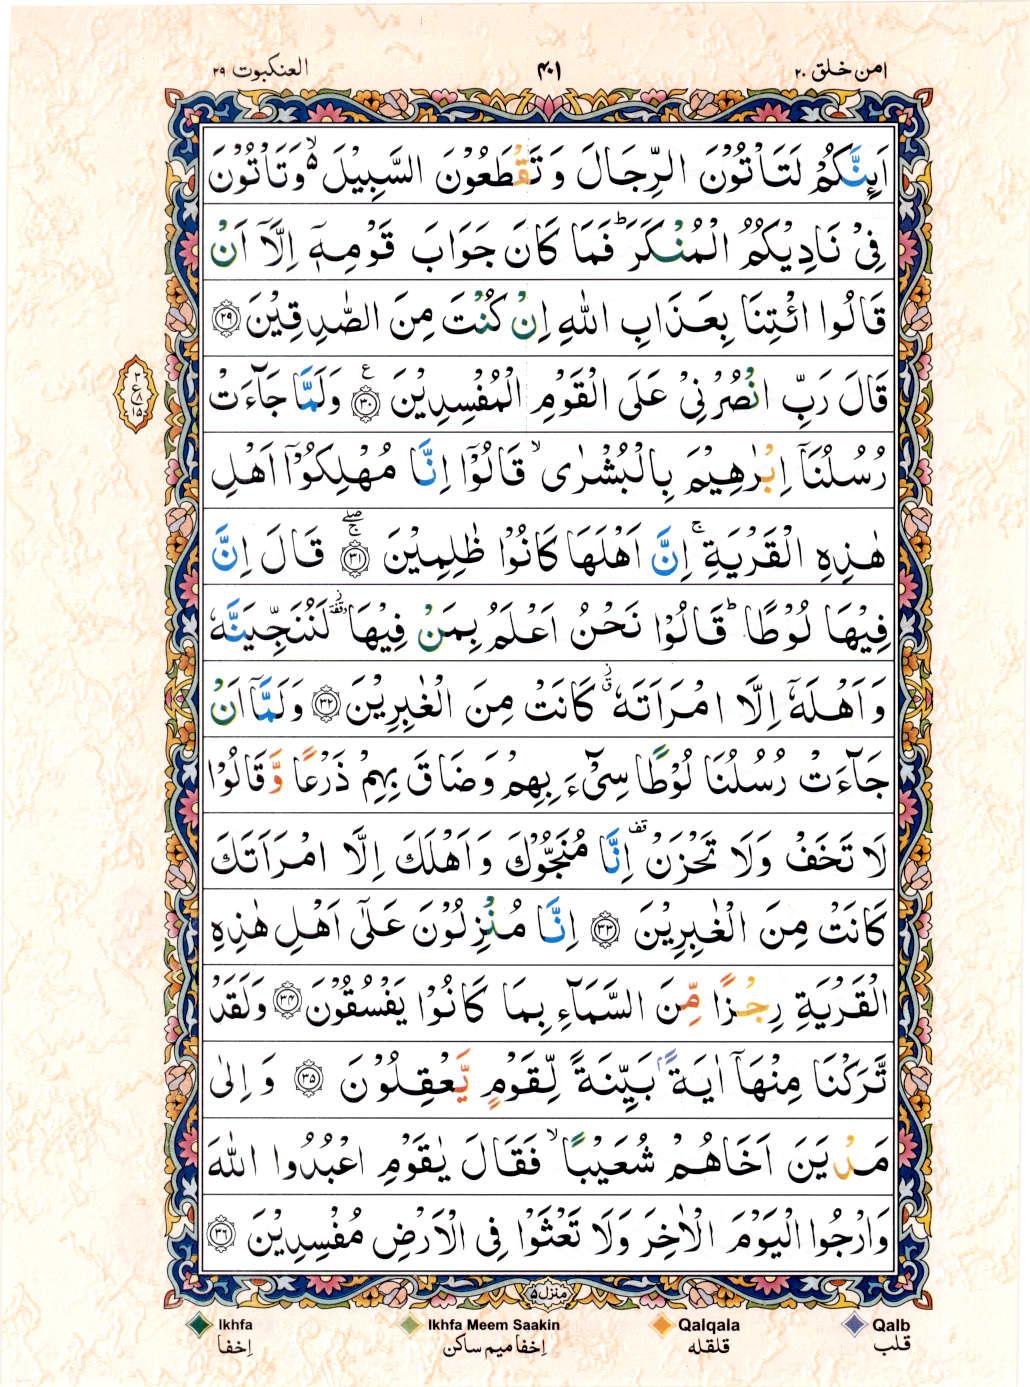 امن خلق ۲۰
۴۰۱
العنکبوت ۲۹
اَئِنَّكُمْ لَتَاْتُوْنَ الرِّجَالَ وَ تَقْطَعُوْنَ السَّبِيْلَ ۙ۬ وَتَاْتُوْنَ
فِيْ نَادِيْكُمُ الْمُنْكَرَ ؕ فَمَا كَانَ جَوَابَ قَوْمِهٖۤ اِلَّاۤ اَنْ
قَالُوا ائْتِنَا بِعَذَابِ اللّٰهِ اِنْ كُنْتَ مِنَ الصّٰدِقِيْنَ ۲۹
قَالَ رَبِّ انْصُرْنِيْ عَلَى الْقَوْمِ الْمُفْسِدِيْنَ ۳۰ ع وَلَمَّا جَآءَتْ
۳
ع
۸
۱۵
رُسُلُنَاۤ اِبْرٰهِيْمَ بِالْبُشْرٰى ۙ قَالُوْۤا اِنَّا مُهْلِكُوْۤا اَهْلِ
هٰذِهِ الْقَرْيَةِ ۚ اِنَّ اَهْلَهَا كَانُوْا ظٰلِمِيْنَ ۳۱ ۖۚ قَالَ اِنَّ
فِيْهَا لُوْطًا ؕ قَالُوْا نَحْنُ اَعْلَمُ بِمَنْ فِيْهَا ؗ لَنُنَجِّيَنَّهٗ
وَ اَهْلَهٗۤ اِلَّا امْرَاَتَهٗ ؗ كَانَتْ مِنَ الْغٰبِرِيْنَ ۳۲ وَ لَمَّاۤ اَنْ
جَآءَتْ رُسُلُنَا لُوْطًا سِيْٓءَ بِهِمْ وَ ضَاقَ بِهِمْ ذَرْعًا وَّ قَالُوْا
لَا تَخَفْ وَ لَا تَحْزَنْ قف اِنَّا مُنَجُّوْكَ وَ اَهْلَكَ اِلَّا امْرَاَتَكَ
كَانَتْ مِنَ الْغٰبِرِيْنَ ۳۳ اِنَّا مُنْزِلُوْنَ عَلٰۤى اَهْلِ هٰذِهِ
الْقَرْيَةِ رِجْزًا مِّنَ السَّمَآءِ بِمَا كَانُوْا يَفْسُقُوْنَ ۳۴ وَ لَقَدْ
تَّرَكْنَا مِنْهَاۤ اٰيَةًۢ بَيِّنَةً لِّقَوْمٍ يَّعْقِلُوْنَ ۳۵ وَ اِلٰى
مَدْيَنَ اَخَاهُمْ شُعَيْبًا ۙ فَقَالَ يٰقَوْمِ اعْبُدُوا اللّٰهَ
وَ ارْجُوا الْيَوْمَ الْاٰخِرَ وَ لَا تَعْثَوْا فِي الْاَرْضِ مُفْسِدِيْنَ ۳۶
منزل ۵
Ikhfa
اِخفا
Ikhfa Meem Saakin
اِخفا میم ساکن
Qalqala
قلقله
Qalb
قلب